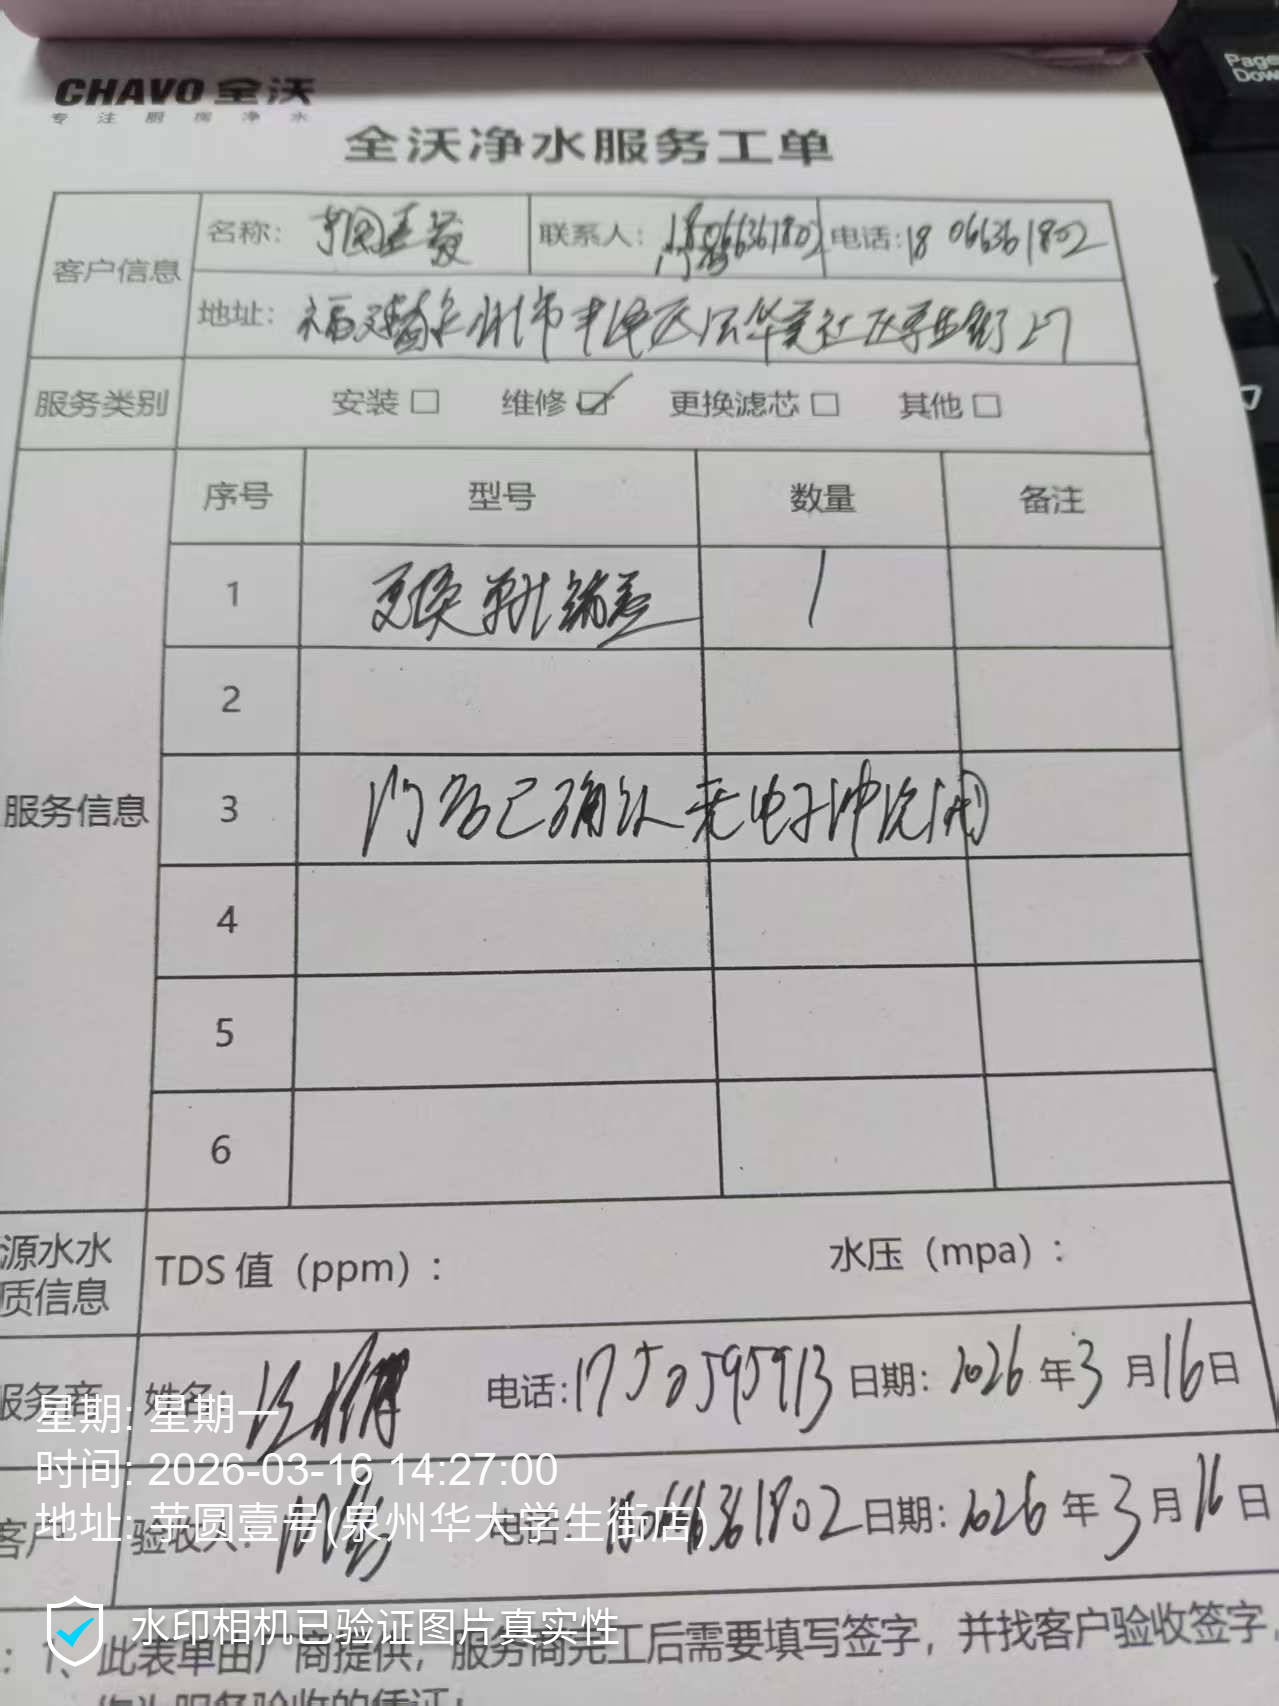 Page
Down
CHAVO 全沃
专注厨房净水
全沃净水服务工单
客户信息
名称: 芋圆壹号
联系人: 18066361802
电话: 18066361802
地址: 福建省泉州市丰泽区 华美社区学生街
服务类别
安装□ 维修☑ 更换滤芯□ 其他□
服务信息
序号 型号 数量 备注
1 更换 1
2
3 门店已确认 无电子冲洗阀
4
5
6
源水水
质信息
TDS 值（ppm）:
水压（mpa）:
服务商 姓名: 电话: 17505959713 日期: 2026 年 3 月 16 日
星期: 星期一
时间: 2026-03-16 14:27:00
地址: 芋圆壹号(泉州华大学生街店)
客户 验收人: 电话: 18066361802 日期: 2026 年 3 月 16 日
水印相机已验证图片真实性
: 1、此表单由厂商提供，服务商完工后需要填写签字，并找客户验收签字，
作为服务验收的凭证;